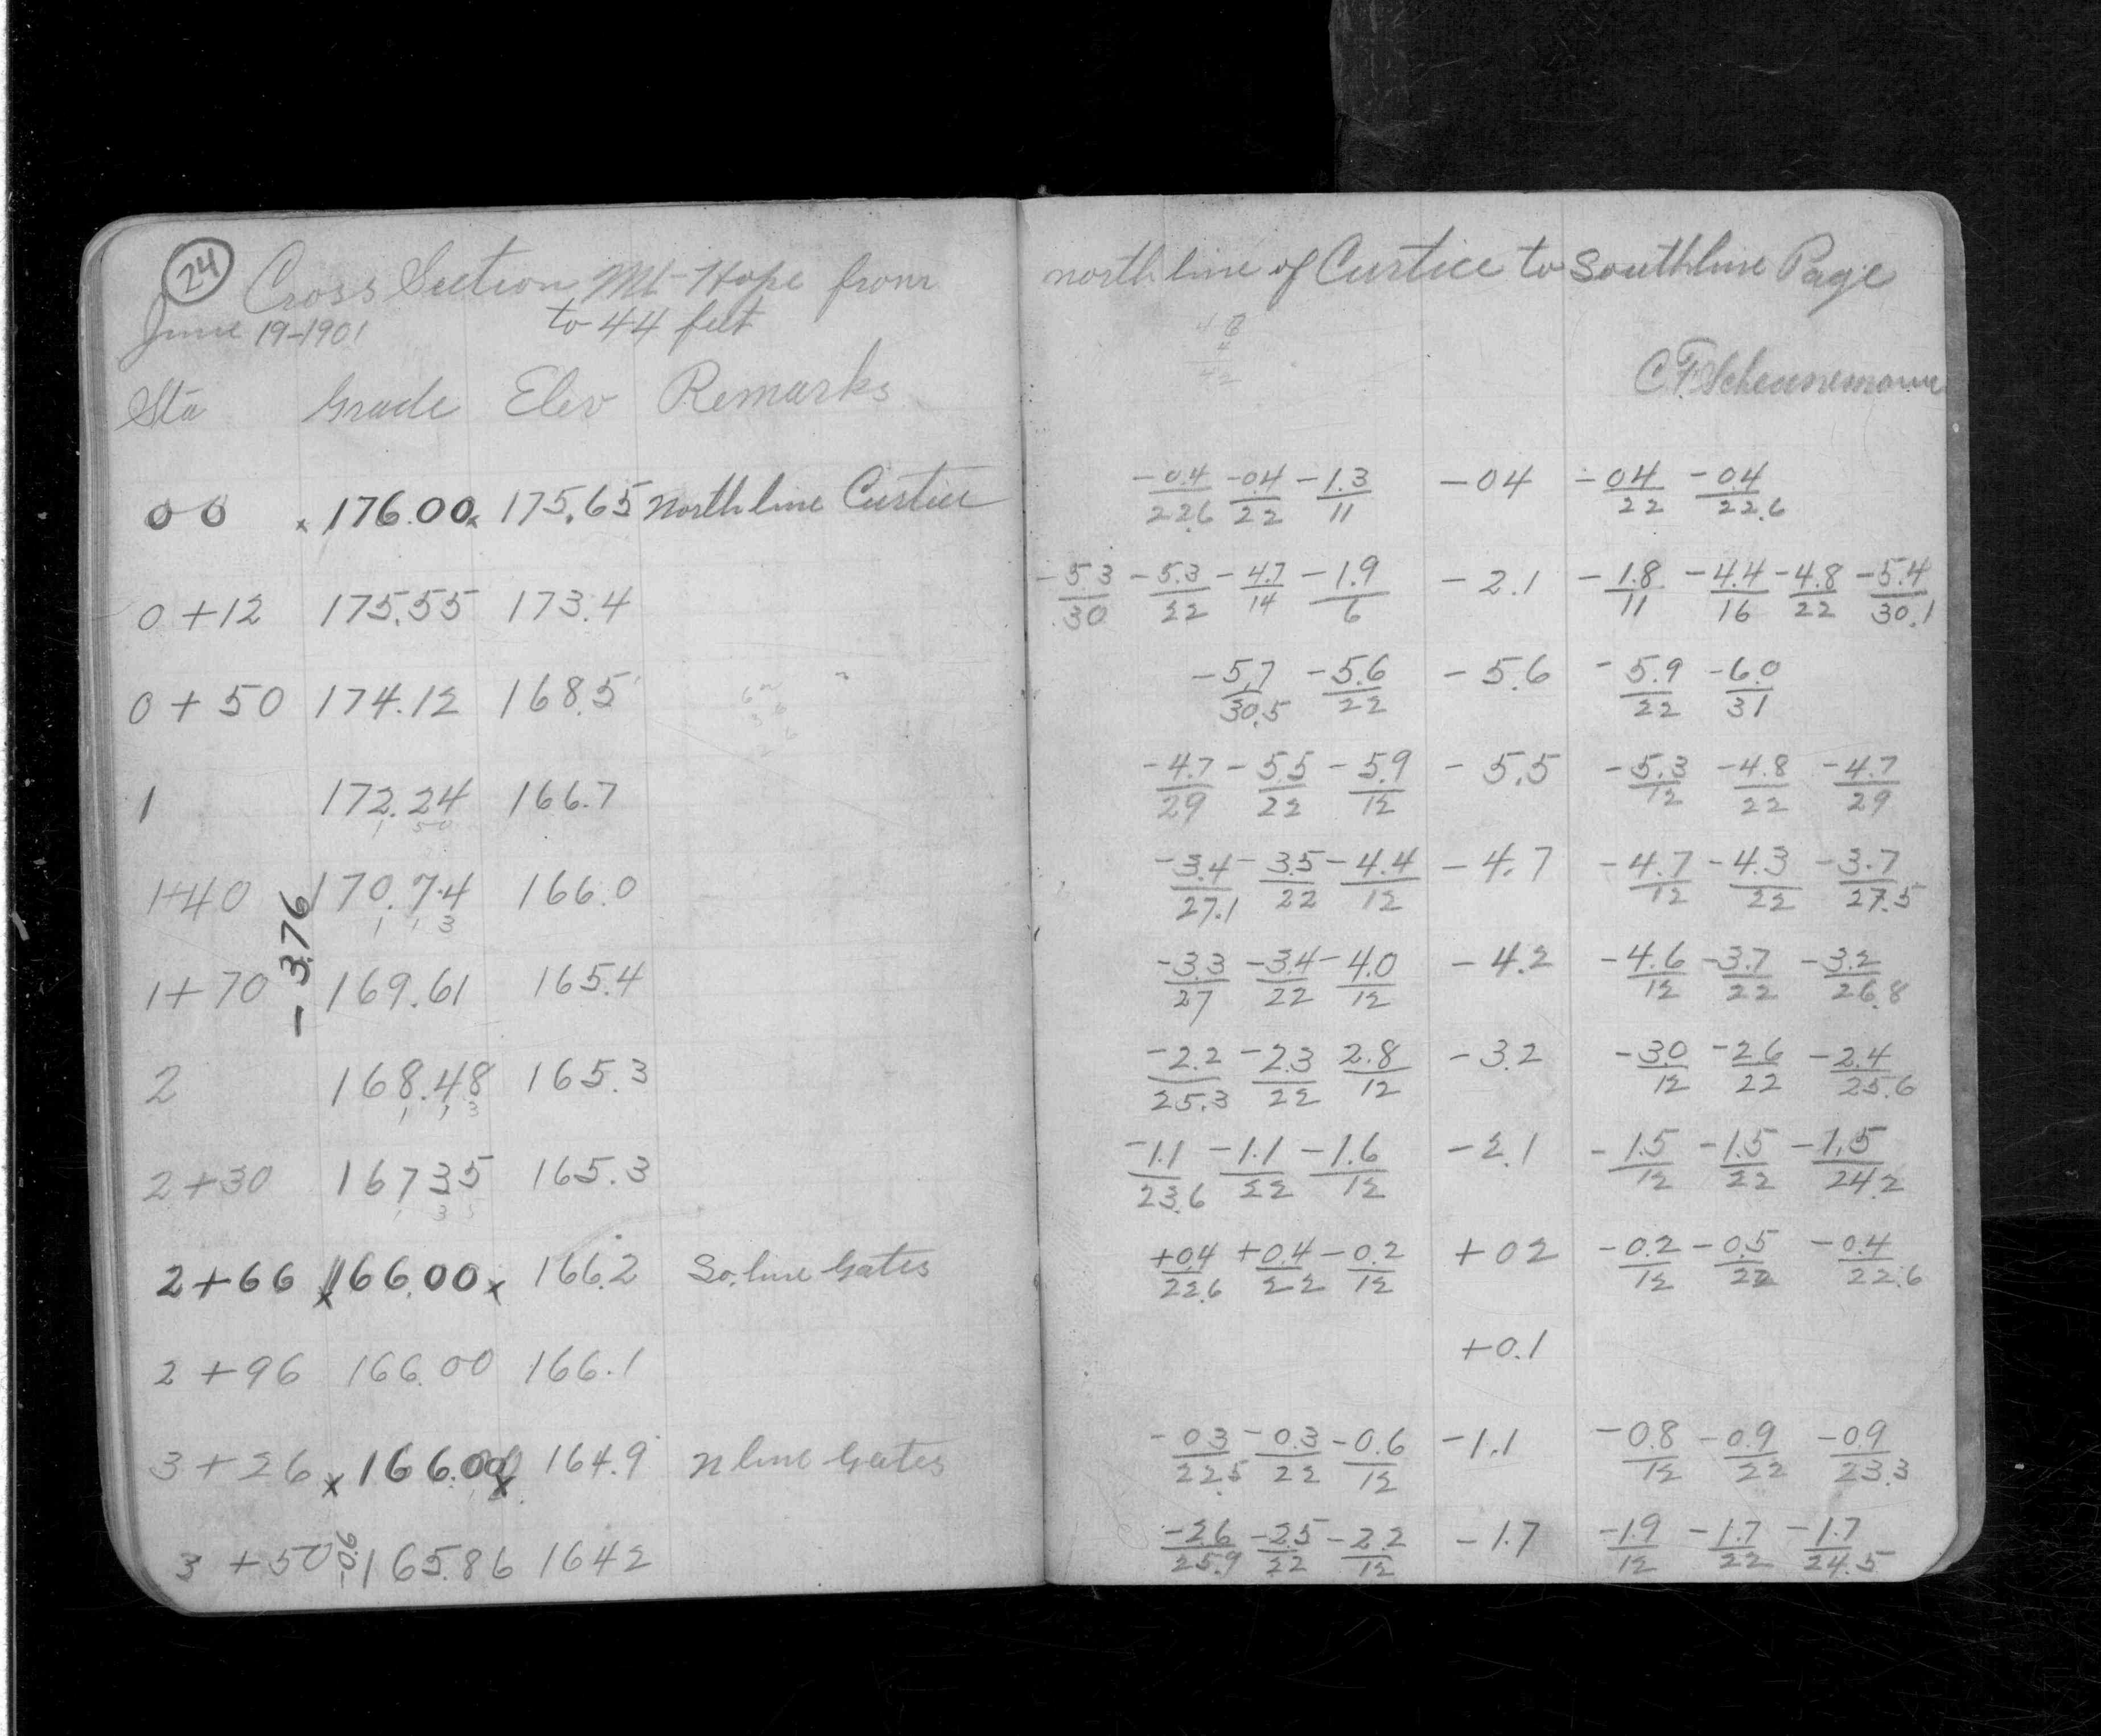 24
Cross Section Mt-Hope from north line of Curtice to South line Page
June 19-1901 to 44 feet
C.F. Scheunemann
Sta Grade Elev Remarks
00 x 176.00 x 175.65 North line Curtice -0.4/22.6 -0.4/22 -1.3/11 -04 -04/22 -04/22.6
0+12 175.55 173.4 -5.3/30 -5.3/22 -4.7/14 -1.9/6 -2.1 -1.8/11 -4.4/16 -4.8/22 -5.4/30.1
0+50 174.12 168.5 -5.7/30.5 -5.6/22 -5.6 -5.9/22 -6.0/31
1 172.24 166.7 -4.7/29 -5.5/22 -5.9/12 -5.5 -5.3/12 -4.8/22 -4.7/29
1 50
1+40 170.74 166.0 -3.4/27.1 -3.5/22 -4.4/12 -4.7 -4.7/12 -4.3/22 -3.7/27.5
1 1 3
-3.76
1+70 169.61 165.4 -3.3/27 -3.4/22 -4.0/12 -4.2 -4.6/12 -3.7/22 -3.2/26.8
2 168.48 165.3 -2.2/25.3 -2.3/22 2.8/12 -3.2 -3.0/12 -2.6/22 -2.4/25.6
1 1 3
2+30 16735 165.3 -1.1/23.6 -1.1/22 -1.6/12 -2.1 -1.5/12 -1.5/22 -1.5/24.2
1 3 5
2+66 x 166.00 x 166.2 So. line Gates +0.4/22.6 +0.4/22 -0.2/12 +02 -0.2/12 -0.5/22 -0.4/22.6
2+96 166.00 166.1 +0.1
3+26 x 166.00 x 164.9 n line Gates -0.3/22.5 -0.3/22 -0.6/12 -1.1 -0.8/12 -0.9/22 -0.9/23.3
3+50 -0.6 165.86 1642 -2.6/25.9 -2.5/22 -2.2/12 -1.7 -1.9/12 -1.7/22 -1.7/24.5